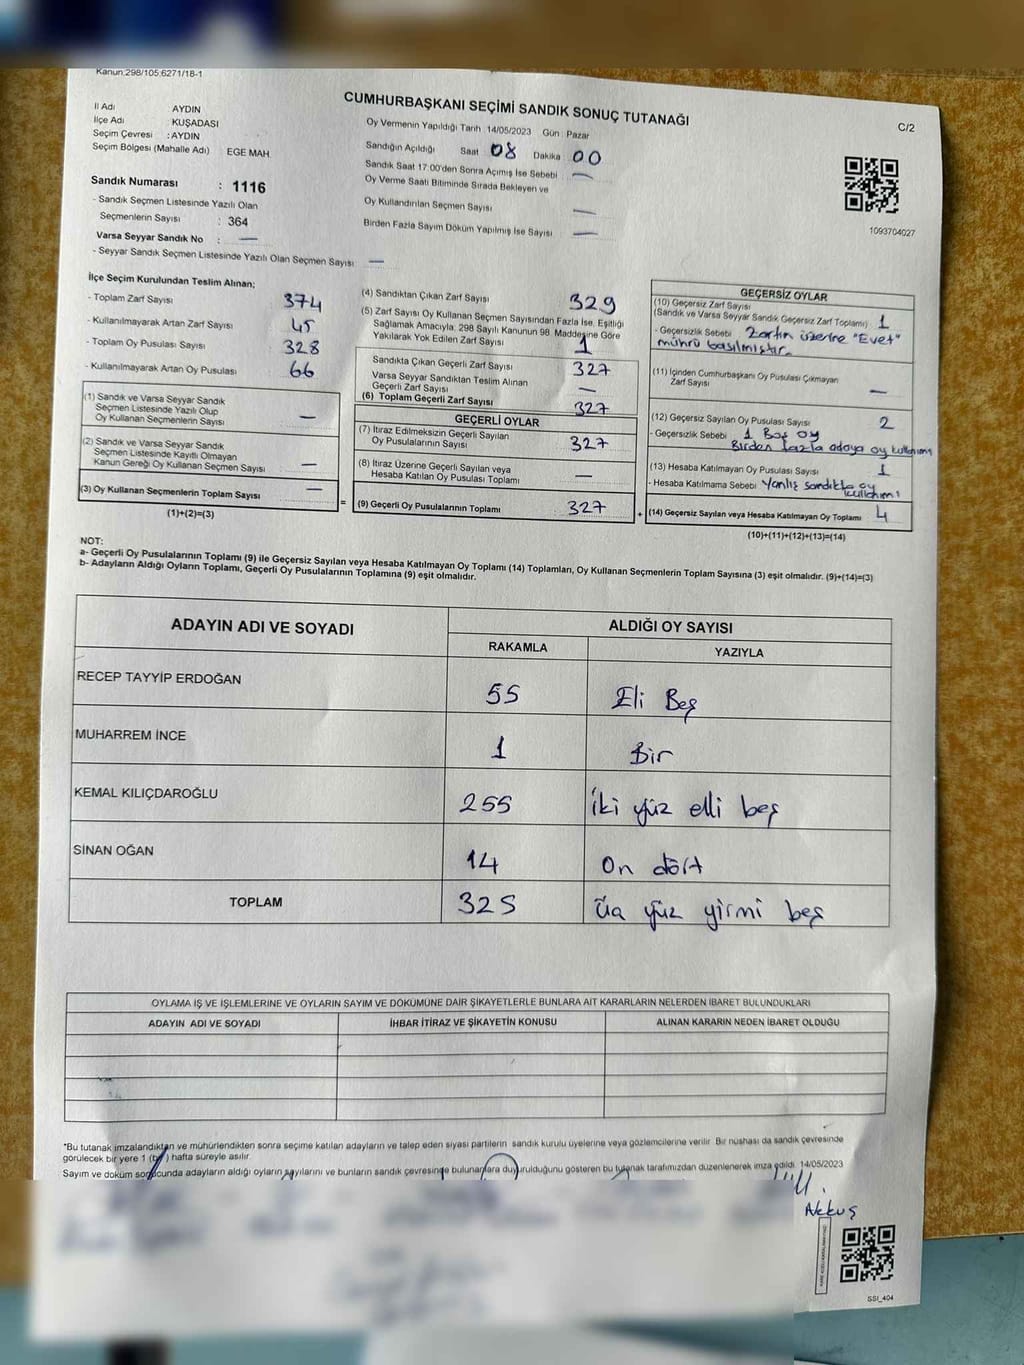 Kanun:298/105,6271/18-1
CUMHURBAŞKANI SEÇİMİ SANDIK SONUÇ TUTANAĞI
C/2
İl Adı AYDIN
İlçe Adı KUŞADASI
Seçim Çevresi : AYDIN
Seçim Bölgesi (Mahalle Adı) EGE MAH
Oy Vermenin Yapıldığı Tarih 14/05/2023 Gün : Pazar
Sandığın Açıldığı Saat 08 Dakika 00
Sandık Saat 17:00'den Sonra Açımış İse Sebebi —
Oy Verme Saati Bitiminde Sırada Bekleyen ve
Oy Kullandırılan Seçmen Sayısı —
Birden Fazla Sayım Döküm Yapılmış İse Sayısı —
1093704027
Sandık Numarası : 1116
- Sandık Seçmen Listesinde Yazılı Olan
Seçmenlerin Sayısı : 364
Varsa Seyyar Sandık No : —
- Seyyar Sandık Seçmen Listesinde Yazılı Olan Seçmen Sayısı —
İlçe Seçim Kurulundan Teslim Alınan;
- Toplam Zarf Sayısı 374
- Kullanılmayarak Artan Zarf Sayısı 45
- Toplam Oy Pusulası Sayısı 328
- Kullanılmayarak Artan Oy Pusulası 66
(1) Sandık ve Varsa Seyyar Sandık
Seçmen Listesinde Yazılı Olup
Oy Kullanan Seçmenlerin Sayısı —
(2) Sandık ve Varsa Seyyar Sandık
Seçmen Listesinde Kayıtlı Olmayan
Kanun Gereği Oy Kullanan Seçmen Sayısı —
(3) Oy Kullanan Seçmenlerin Toplam Sayısı —
(1)+(2)=(3)
=
(4) Sandıktan Çıkan Zarf Sayısı 329
(5) Zarf Sayısı Oy Kullanan Seçmen Sayısından Fazla İse, Eşitliği
Sağlamak Amacıyla, 298 Sayılı Kanunun 98. Maddesine Göre
Yakılarak Yok Edilen Zarf Sayısı 1
Sandıkta Çıkan Geçerli Zarf Sayısı 327
Varsa Seyyar Sandıktan Teslim Alınan
Geçerli Zarf Sayısı —
(6) Toplam Geçerli Zarf Sayısı 327
GEÇERLİ OYLAR
(7) İtiraz Edilmeksizin Geçerli Sayılan
Oy Pusulalarının Sayısı 327
(8) İtiraz Üzerine Geçerli Sayılan veya
Hesaba Katılan Oy Pusulası Toplamı —
(9) Geçerli Oy Pusulalarının Toplamı 327
+
GEÇERSİZ OYLAR
(10) Geçersiz Zarf Sayısı
(Sandık ve Varsa Seyyar Sandık Geçersiz Zarf Toplamı) 1
- Geçersizlik Sebebi Zarfın üzerine "Evet"
mührü basılmıştır.
(11) İçinden Cumhurbaşkanı Oy Pusulası Çıkmayan
Zarf Sayısı —
(12) Geçersiz Sayılan Oy Pusulası Sayısı 2
- Geçersizlik Sebebi 1 Boş oy
Birden fazla adaya oy kullanımı
(13) Hesaba Katılmayan Oy Pusulası Sayısı 1
- Hesaba Katılmama Sebebi Yanlış sandıkta oy
kullanımı
(14) Geçersiz Sayılan veya Hesaba Katılmayan Oy Toplamı 4
(10)+(11)+(12)+(13)=(14)
NOT:
a- Geçerli Oy Pusulalarının Toplamı (9) ile Geçersiz Sayılan veya Hesaba Katılmayan Oy Toplamı (14) Toplamları, Oy Kullanan Seçmenlerin Toplam Sayısına (3) eşit olmalıdır. (9)+(14)=(3)
b- Adayların Aldığı Oyların Toplamı, Geçerli Oy Pusulalarının Toplamına (9) eşit olmalıdır.
ADAYIN ADI VE SOYADI ALDIĞI OY SAYISI
RAKAMLA YAZIYLA
RECEP TAYYİP ERDOĞAN 55 Eli Beş
MUHARREM İNCE 1 Bir
KEMAL KILIÇDAROĞLU 255 İki yüz elli beş
SİNAN OĞAN 14 On dört
TOPLAM 325 yüz yirmi beş
OYLAMA İŞ VE İŞLEMLERİNE VE OYLARIN SAYIM VE DÖKÜMÜNE DAİR ŞİKAYETLERLE BUNLARA AİT KARARLARIN NELERDEN İBARET BULUNDUKLARI
ADAYIN ADI VE SOYADI İHBAR İTİRAZ VE ŞİKAYETİN KONUSU ALINAN KARARIN NEDEN İBARET OLDUĞU
*Bu tutanak imzalandıktan ve mühürlendikten sonra seçime katılan adayların ve talep eden siyasi partilerin sandık kurulu üyelerine veya gözlemcilerine verilir. Bir nüshası da sandık çevresinde
görülecek bir yere 1 hafta süreyle asılır.
Sayım ve döküm sonucunda adayların aldığı oyların sayılarını ve bunların sandık çevresinde bulunanlara duyurulduğunu gösteren bu tutanak tarafımızdan düzenlenerek imza edildi. 14/05/2023
Akkuş
SSI_404